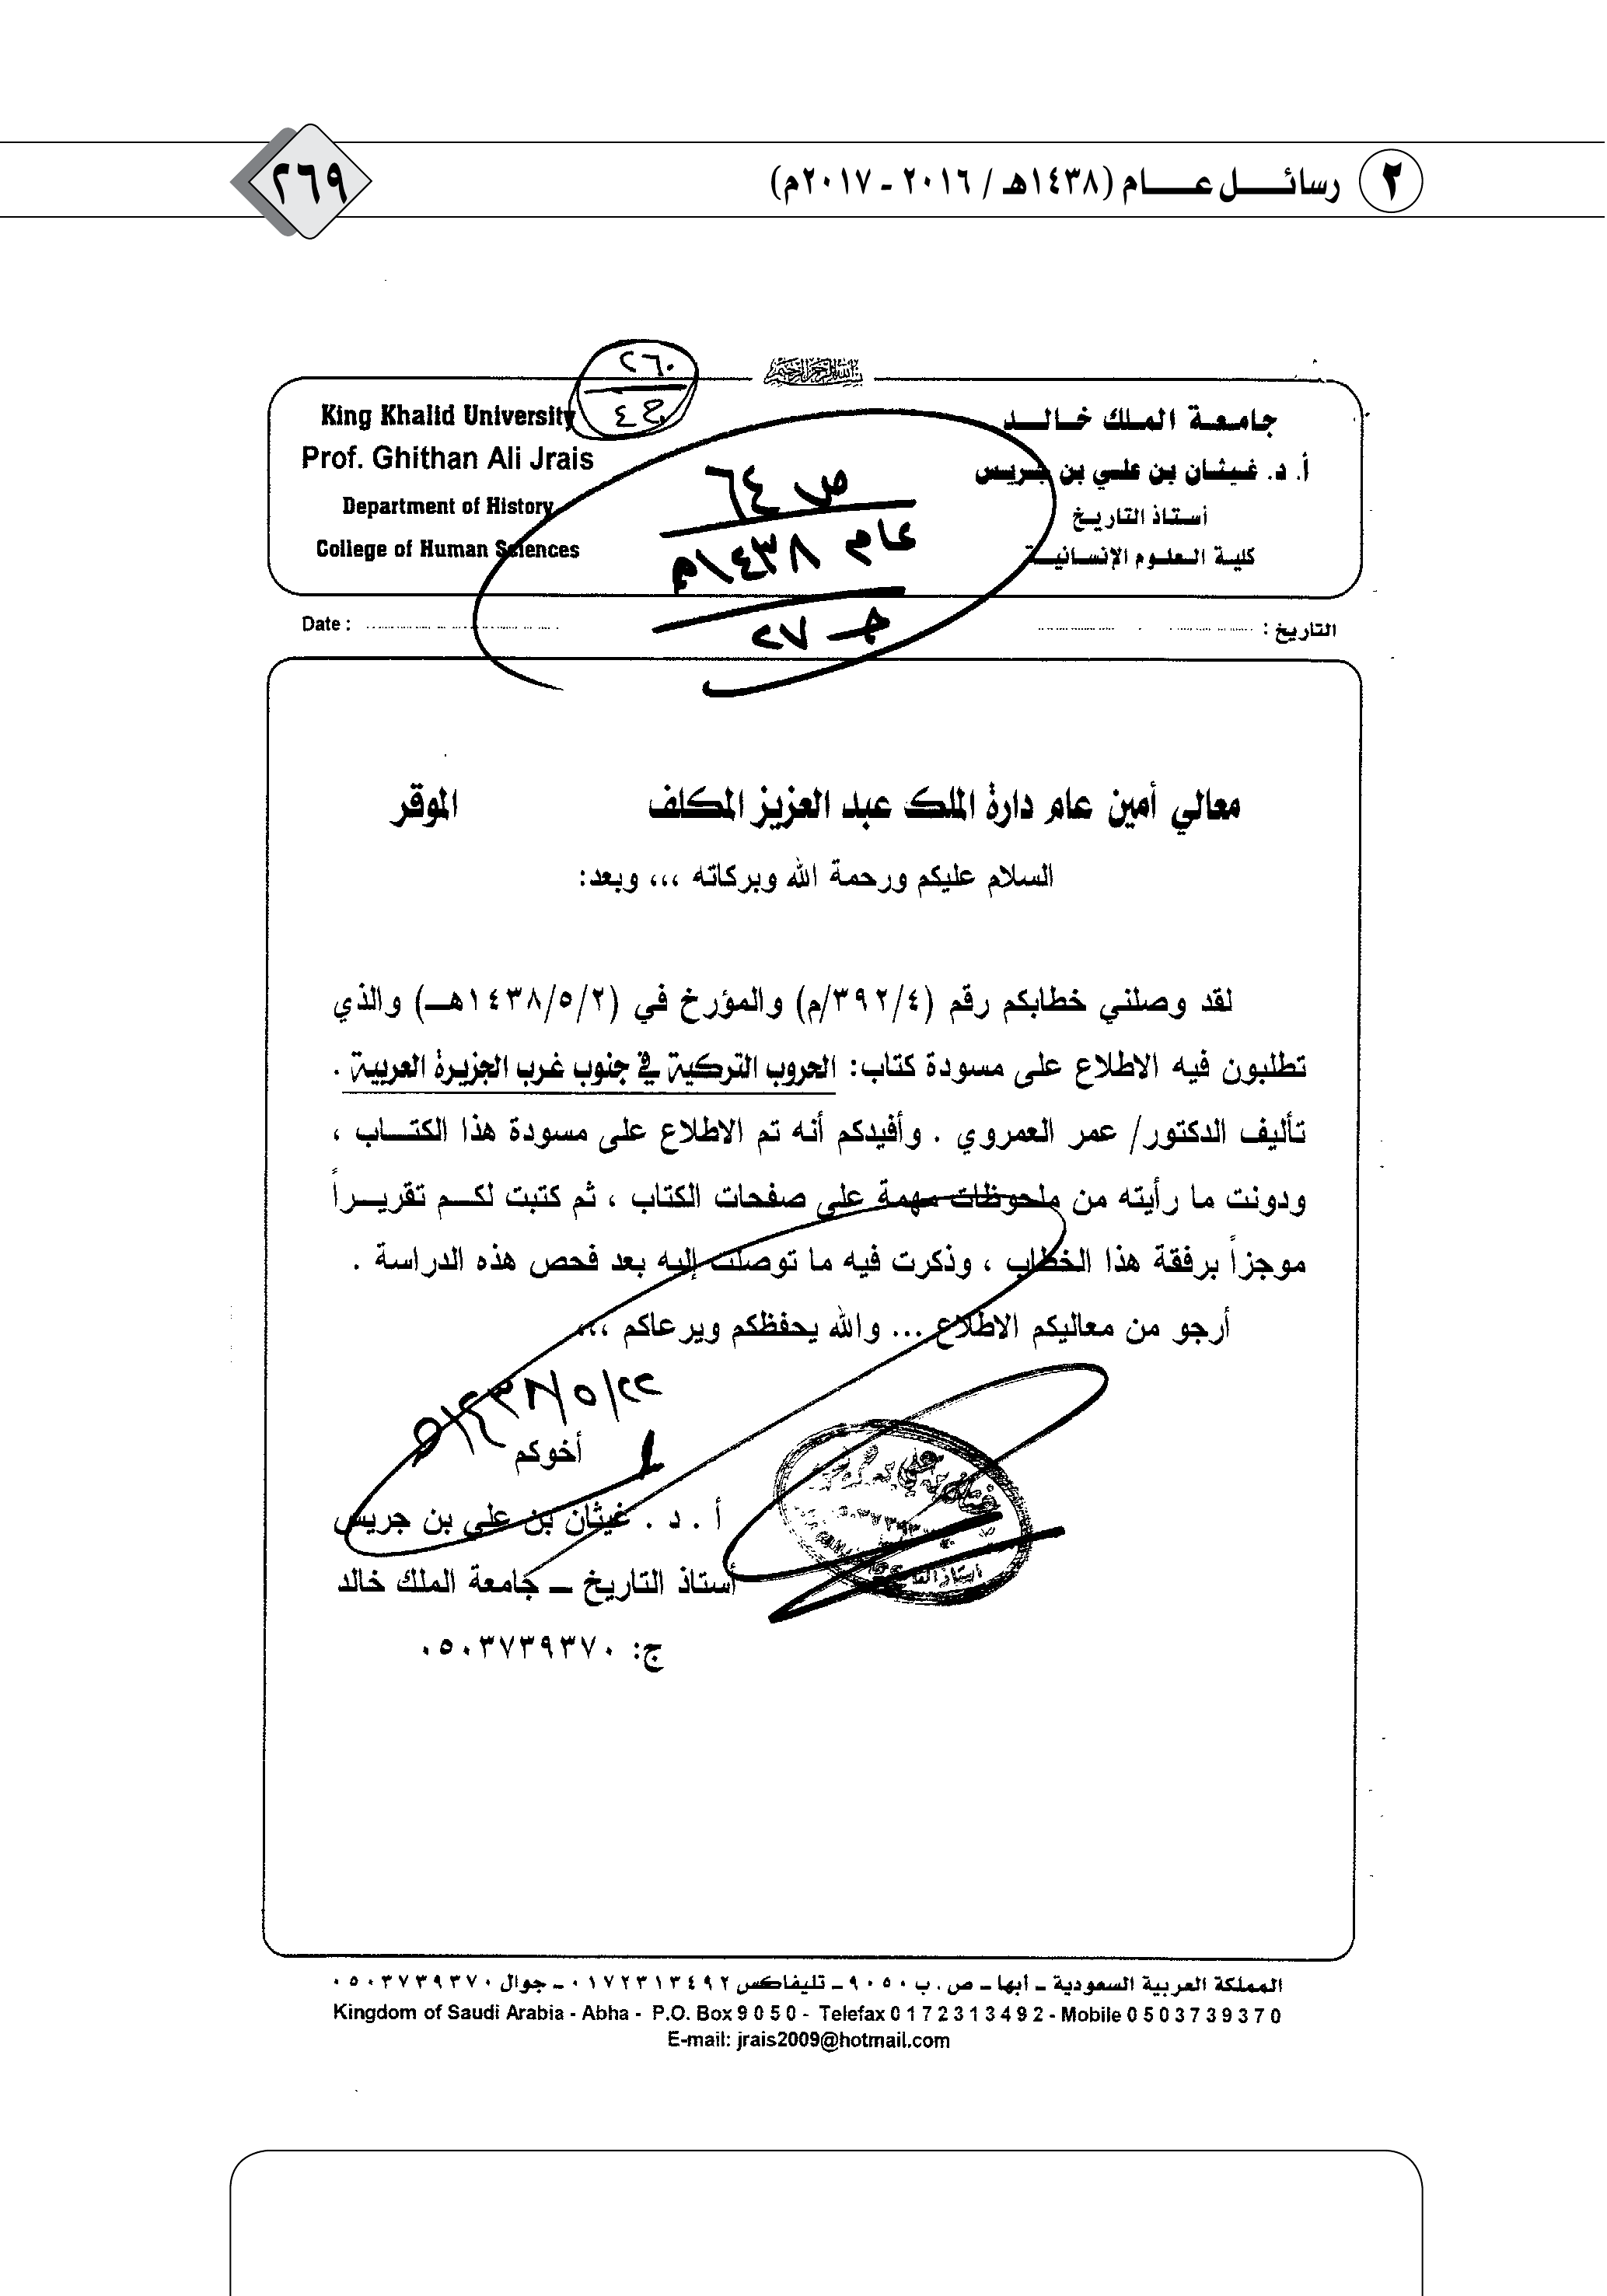 ٢ رسائـــل عـــام (١٤٣٨هـ / ٢٠١٦ - ٢٠١٧م)
٢٦٩
٢٦٠
ج ٤
King Khalid University
Prof. Ghithan Ali Jrais
Department of History
College of Human Sciences
جامعة الملك خالد
أ. د. غيثان بن علي بن جريس
أستاذ التاريخ
كلية العلوم الإنسانية
ص ٦٤
عام ١٤٣٨هـ
Date :
التاريخ :
معالي أمين عام دارة الملك عبد العزيز المكلف الموقر
السلام عليكم ورحمة الله وبركاته ،،، وبعد:
لقد وصلني خطابكم رقم (٣٩٢/٤/م) والمؤرخ في (١٤٣٨/٥/٢هـ) والذي
تطلبون فيه الاطلاع على مسودة كتاب: الحروب التركية في جنوب غرب الجزيرة العربية .
تأليف الدكتور/ عمر العمروي . وأفيدكم أنه تم الاطلاع على مسودة هذا الكتاب ،
ودونت ما رأيته من ملحوظات مهمة على صفحات الكتاب ، ثم كتبت لكم تقريراً
موجزاً برفقة هذا الخطاب ، وذكرت فيه ما توصلت إليه بعد فحص هذه الدراسة .
أرجو من معاليكم الاطلاع ... والله يحفظكم ويرعاكم ،،،
١٤٣٨/٥/٢٢هـ
أخوكم
أ . د . غيثان بن علي بن جريس
أستاذ التاريخ – جامعة الملك خالد
ج: ٠٥٠٣٧٣٩٣٧٠
المملكة العربية السعودية - أبها - ص . ب ٩٠٥٠ - تليفاكس ٠١٧٢٣١٣٤٩٢ - جوال ٠٥٠٣٧٣٩٣٧٠
Kingdom of Saudi Arabia - Abha - P.O. Box 9 0 5 0 - Telefax 0 1 7 2 3 1 3 4 9 2 - Mobile 0 5 0 3 7 3 9 3 7 0
E-mail: jrais2009@hotmail.com